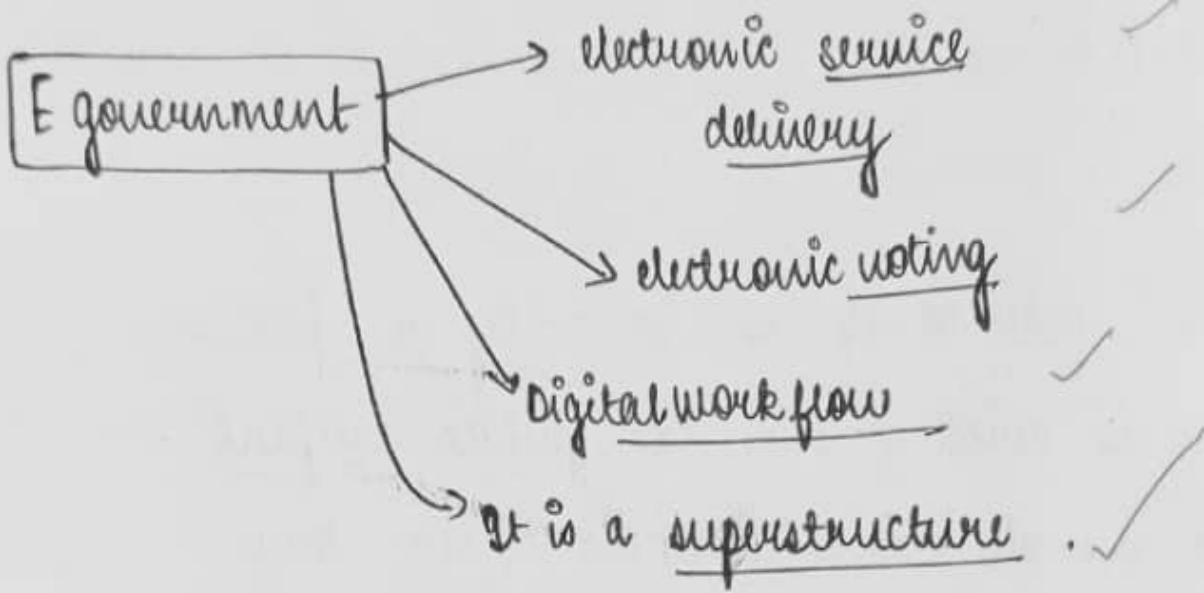 E government
electronic service
delivery
electronic voting
Digital work flow
It is a superstructure.